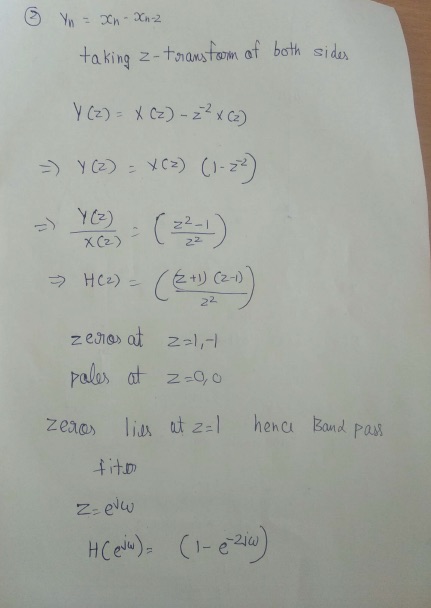 ② Yn = xn - xn-2
taking z-transform of both sides
Y(z) = X(z) - z⁻² X(z)
=> Y(z) = X(z) (1-z⁻²)
=> Y(z)/X(z) = (z²-1/z²)
=> H(z) = ((z+1)(z-1)/z²)
zeros at z=1,-1
poles at z=0,0
zeros lies at z=1 hence Band pass
filter
z=e^jω
H(e^jω) = (1-e^-2jω)